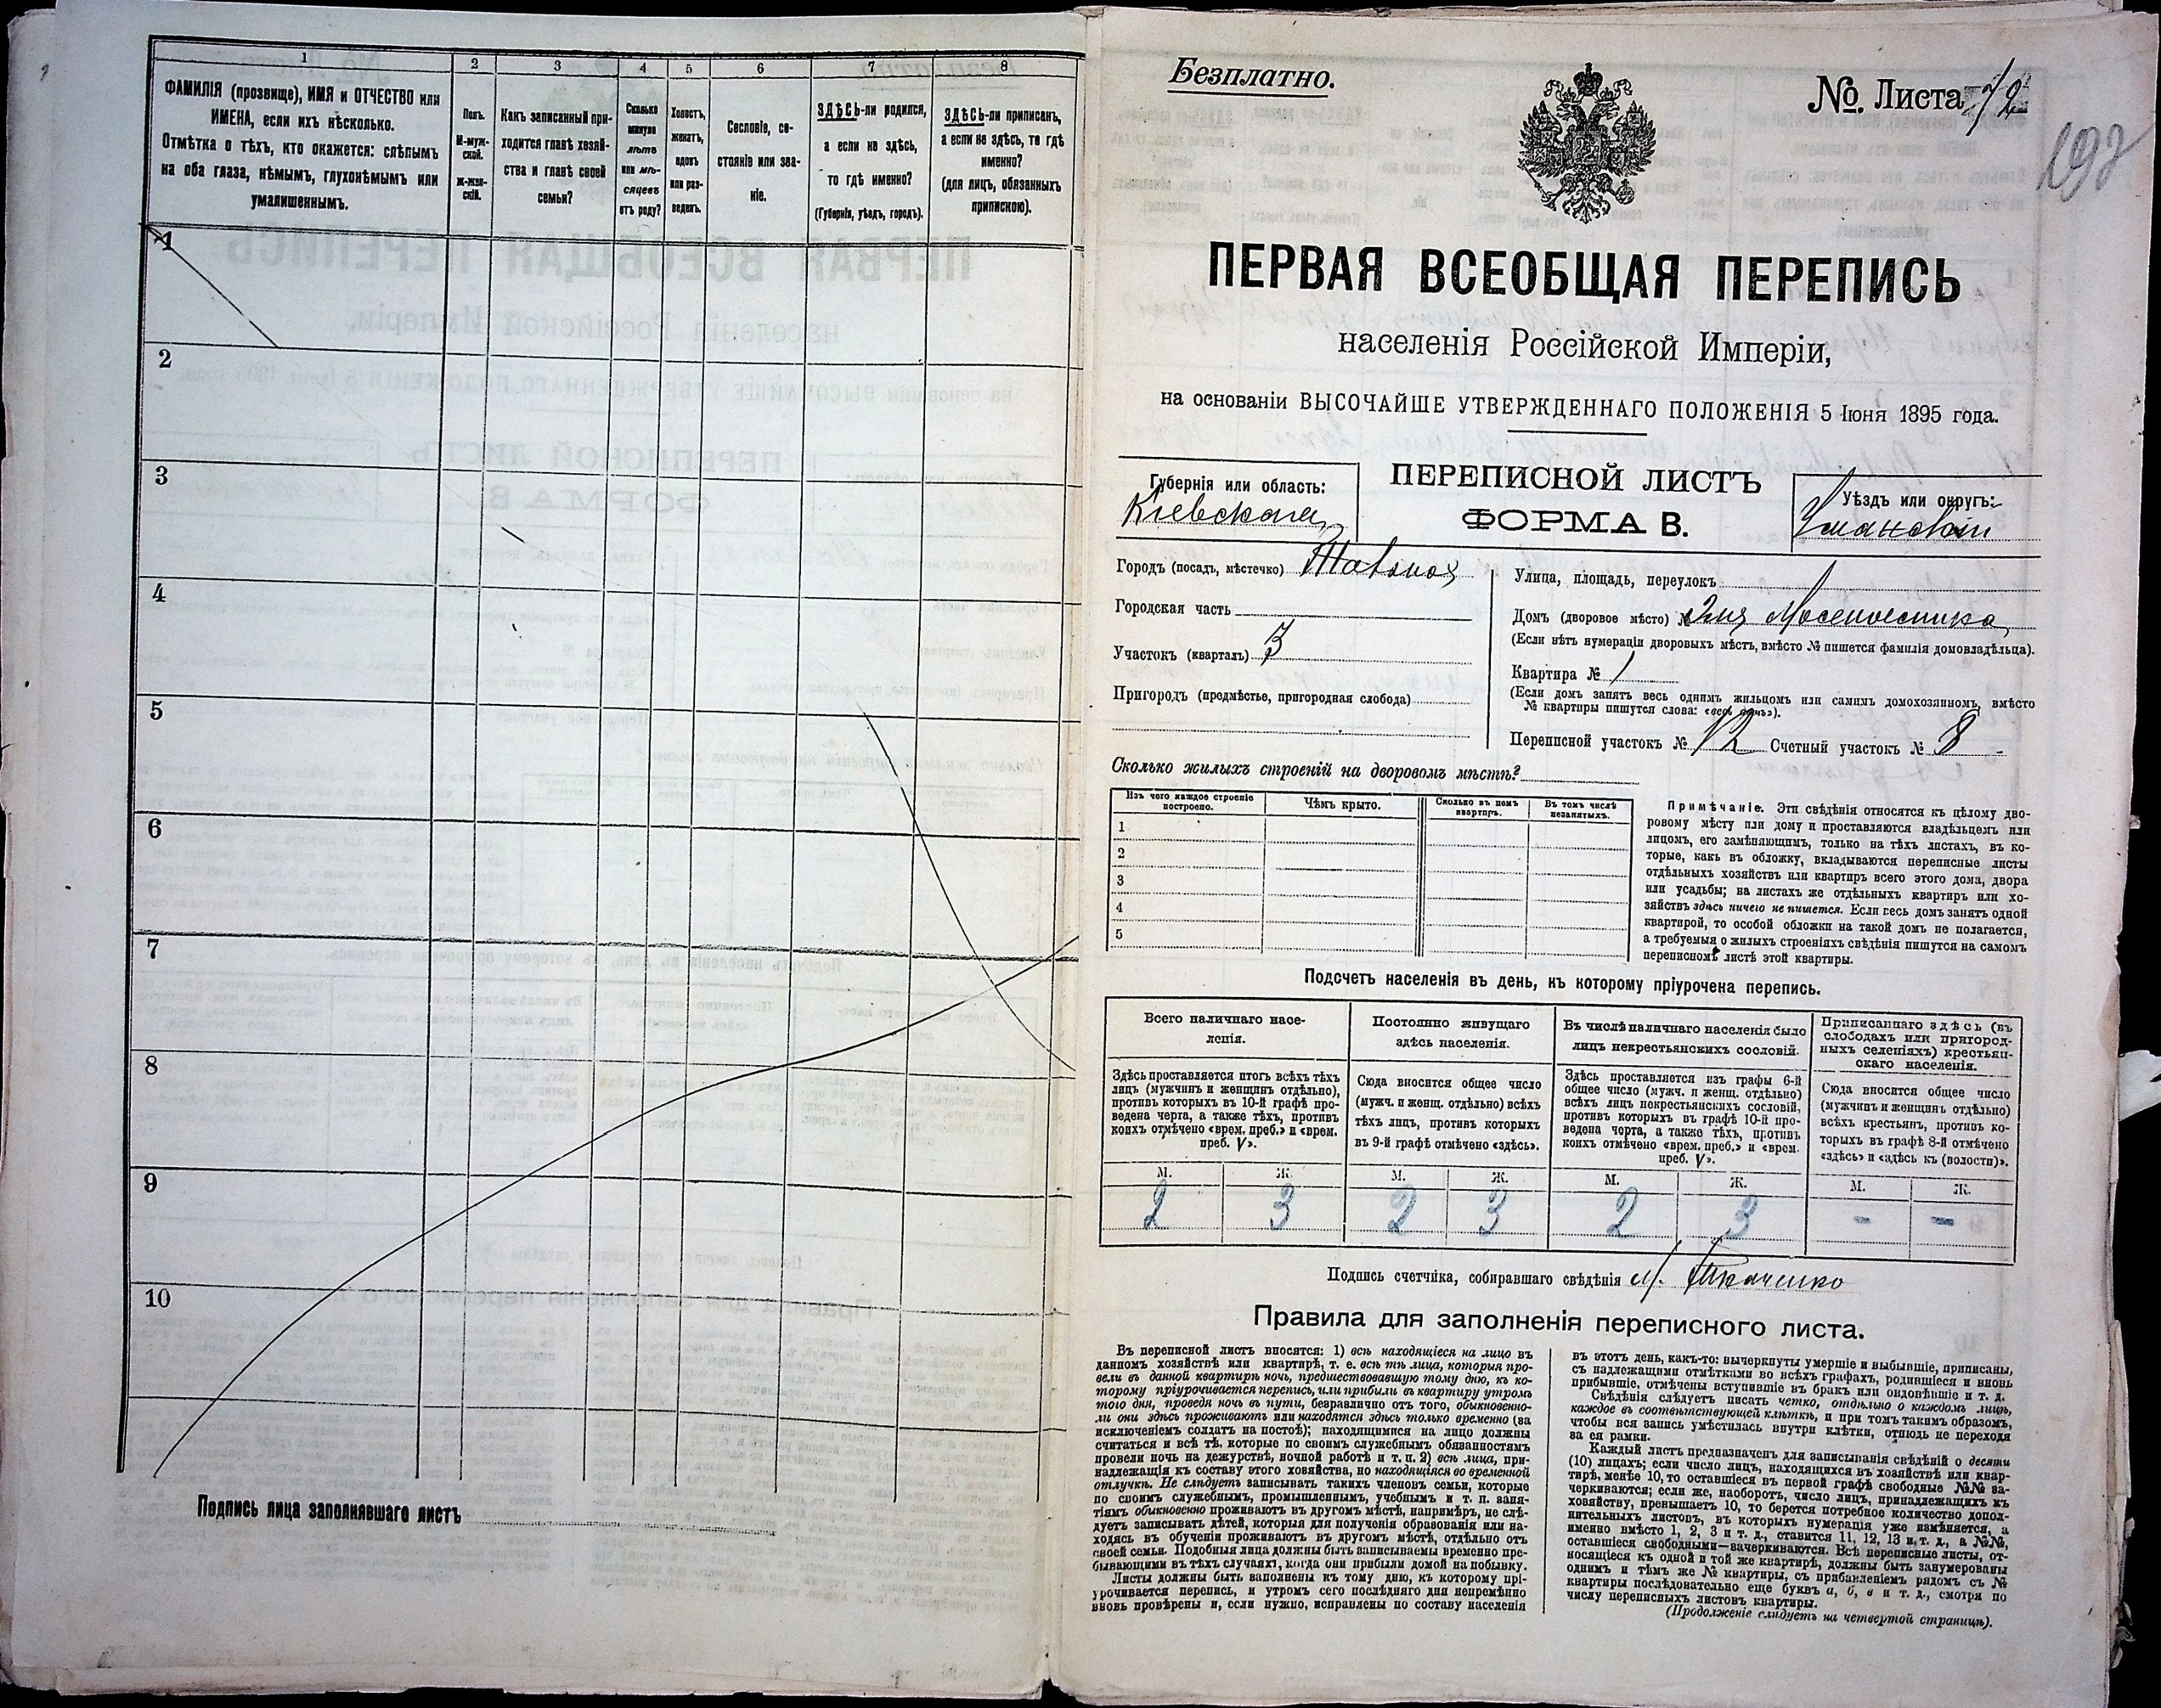 1 2 3 4 5 6 7 8
ФАМИЛІЯ (прозвище), ИМЯ и ОТЧЕСТВО или
ИМЕНА, если ихъ нѣсколько.
Отмѣтка о тѣхъ, кто окажется: слѣпымъ
на оба глаза, нѣмымъ, глухонѣмымъ или
умалишеннымъ.
Полъ.
М-муж-
ской.
ж-жен-
скій.
Какъ записанный при-
ходится главѣ хозяй-
ства и главѣ своей
семьи?
Сколько
минуло
лѣтъ
или мѣ-
сяцевъ
отъ роду?
Холостъ,
женатъ,
вдовъ
или раз-
веденъ.
Сословіе, со-
стояніе или зва-
ніе.
ЗДѢСЬ-ли родился,
а если не здѣсь,
то гдѣ именно?
(Губернія, уѣздъ, городъ).
ЗДѢСЬ-ли приписанъ,
а если не здѣсь, то гдѣ
именно?
(для лицъ, обязанныхъ
припиской).
1
2
3
4
5
6
7
8
9
10
Подпись лица заполнявшаго листъ
Безплатно.
№ Листа 72
ПЕРВАЯ ВСЕОБЩАЯ ПЕРЕПИСЬ
населенія Россійской Имперіи,
на основаніи ВЫСОЧАЙШЕ УТВЕРЖДЕННАГО ПОЛОЖЕНІЯ 5 Іюня 1895 года.
Губернія или область:
Кіевская
ПЕРЕПИСНОЙ ЛИСТЪ
ФОРМА В.
Уѣздъ или округъ:
Уманскій
Городъ (посадъ, мѣстечко)
Городская часть
Участокъ (кварталъ) 3
Пригородъ (предмѣстье, пригородная слобода)
Улица, площадь, переулокъ
Домъ (дворовое мѣсто) №
(Если нѣтъ нумераціи дворовыхъ мѣстъ, вмѣсто № пишется фамилія домовладѣльца).
Квартира № 1
(Если домъ занятъ весь однимъ жильцомъ или самимъ домохозяиномъ, вмѣсто
№ квартиры пишутся слова: «весь домъ»).
Переписной участокъ № 12 Счетный участокъ № 8
Сколько жилыхъ строеній на дворовомъ мѣстѣ?
Изъ чего каждое строеніе
построено.
Чѣмъ крыто.
Сколько въ немъ
квартиръ.
Въ томъ числѣ
незанятыхъ.
1
2
3
4
5
Примѣчаніе. Эти свѣдѣнія относятся къ цѣлому дво-
ровому мѣсту или дому и проставляются владѣльцемъ или
лицомъ, его замѣняющимъ, только на тѣхъ листахъ, въ ко-
торые, какъ въ обложку, вкладываются переписные листы
отдѣльныхъ хозяйствъ или квартиръ всего этого дома, двора
или усадьбы; на листахъ же отдѣльныхъ квартиръ или хо-
зяйствъ здѣсь ничего не пишется. Если весь домъ занятъ одной
квартирой, то особой обложки на такой домъ не полагается,
а требуемыя о жилыхъ строеніяхъ свѣдѣнія пишутся на самомъ
переписномъ листѣ этой квартиры.
Подсчетъ населенія въ день, къ которому пріурочена перепись.
Всего наличнаго насе-
ленія.
Здѣсь проставляется итогъ всѣхъ тѣхъ
лицъ (мужчинъ и женщинъ отдѣльно),
противъ которыхъ въ 10-й графѣ про-
ведена черта, а также тѣхъ, противъ
коихъ отмѣчено «врем. преб.» и «врем.
преб. V».
Постоянно живущаго
здѣсь населенія.
Сюда вносится общее число
(мужч. и женщ. отдѣльно) всѣхъ
тѣхъ лицъ, противъ которыхъ
въ 9-й графѣ отмѣчено «здѣсь».
Въ числѣ наличнаго населенія было
лицъ некрестьянскихъ сословій.
Здѣсь проставляется изъ графы 6-й
общее число (мужч. и женщ. отдѣльно)
всѣхъ лицъ некрестьянскихъ сословій,
противъ которыхъ въ графѣ 10-й про-
ведена черта, а также тѣхъ, противъ
коихъ отмѣчено «врем. преб.» и «врем.
преб. V».
Приписаннаго здѣсь (въ
слободахъ или пригород-
ныхъ селеніяхъ) крестьян-
скаго населенія.
Сюда вносится общее число
(мужчинъ и женщинъ отдѣльно)
всѣхъ крестьянъ, противъ ко-
торыхъ въ графѣ 8-й отмѣчено
«здѣсь» и «здѣсь къ (волости)».
М. Ж. М. Ж. М. Ж. М. Ж.
2 3 2 3 2 3 - -
Подпись счетчика, собиравшаго свѣдѣнія М. Ткаченко
Правила для заполненія переписного листа.
Въ переписной листъ вносятся: 1) всѣ находящіеся на лицо въ
данномъ хозяйствѣ или квартирѣ, т. е. всѣ тѣ лица, которыя про-
вели въ данной квартирѣ ночь, предшествовавшую тому дню, къ ко-
торому пріурочивается перепись, или прибыли въ квартиру утромъ
того дня, проведя ночь въ пути, безразлично отъ того, обыкновенно-
ли они здѣсь проживаютъ или находятся здѣсь только временно (за
исключеніемъ солдатъ на постоѣ); находящимися на лицо должны
считаться и всѣ тѣ, которые по своимъ служебнымъ обязанностямъ
провели ночь на дежурствѣ, ночной работѣ и т. п. 2) всѣ лица, при-
надлежащія къ составу этого хозяйства, но находящіяся во временной
отлучкѣ. Не слѣдуетъ записывать такихъ членовъ семьи, которые
по своимъ служебнымъ, промышленнымъ, учебнымъ и т. п. заня-
тіямъ обыкновенно проживаютъ въ другомъ мѣстѣ, напримѣръ, не слѣ-
дуетъ записывать дѣтей, которыя для полученія образованія или на-
ходясь въ обученіи проживаютъ въ другомъ мѣстѣ, отдѣльно отъ
своей семьи. Подобныя лица должны быть записываемы временно пре-
бывающими въ тѣхъ случаяхъ, когда они прибыли домой на побывку.
Листы должны быть заполнены къ тому дню, къ которому прі-
урочивается перепись, и утромъ сего послѣдняго дня непремѣнно
вновь провѣрены и, если нужно, исправлены по составу населенія
въ этотъ день, какъ-то: вычеркнуты умершіе и выбывшіе, приписаны,
съ надлежащими отмѣтками во всѣхъ графахъ, родившіеся и вновь
прибывшіе, отмѣчены вступившіе въ бракъ или овдовѣвшіе и т. д.
Свѣдѣнія слѣдуетъ писать четко, отдѣльно о каждомъ лицѣ,
каждое въ соотвѣтствующей клѣткѣ, и при томъ такимъ образомъ,
чтобы вся запись умѣстилась внутри клѣтки, отнюдь не переходя
за ея рамки.
Каждый листъ предназначенъ для записыванія свѣдѣній о десяти
(10) лицахъ; если число лицъ, находящихся въ хозяйствѣ или квар-
тирѣ, менѣе 10, то оставшіеся въ первой графѣ свободные №№ за-
черкиваются; если же, наоборотъ, число лицъ, принадлежащихъ къ
хозяйству, превышаетъ 10, то берется потребное количество допол-
нительныхъ листовъ, въ которыхъ нумерація уже измѣняется, а
именно вмѣсто 1, 2, 3 и т. д., ставится 11, 12, 13 и т. д., а №№,
оставшіеся свободными—зачеркиваются. Всѣ переписные листы, от-
носящіеся къ одной и той же квартирѣ, должны быть занумерованы
однимъ и тѣмъ же № квартиры, съ прибавленіемъ рядомъ съ №
квартиры послѣдовательно еще буквъ а, б, в и т. д., смотря по
числу переписныхъ листовъ квартиры.
(Продолженіе слѣдуетъ на четвертой страницѣ).